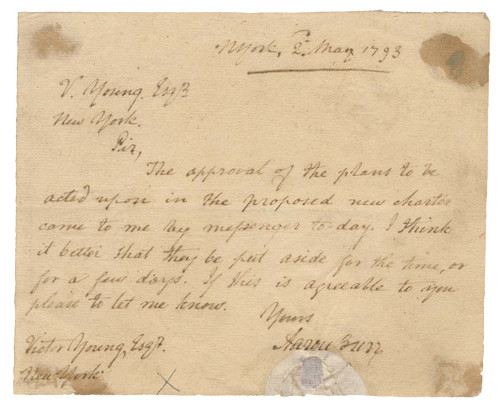 NYork, 2d. May 1793
V. Young. Esqr.
New York.
Sir,
The approval of the plans to be
acted upon in the proposed new charter
came to me by messenger to-day. I think
it better that they be put aside for the time, or
for a few days. If this is agreeable to you
please to let me know.
Yours
Aaron Burr
Victor Young, Esqr.
New York